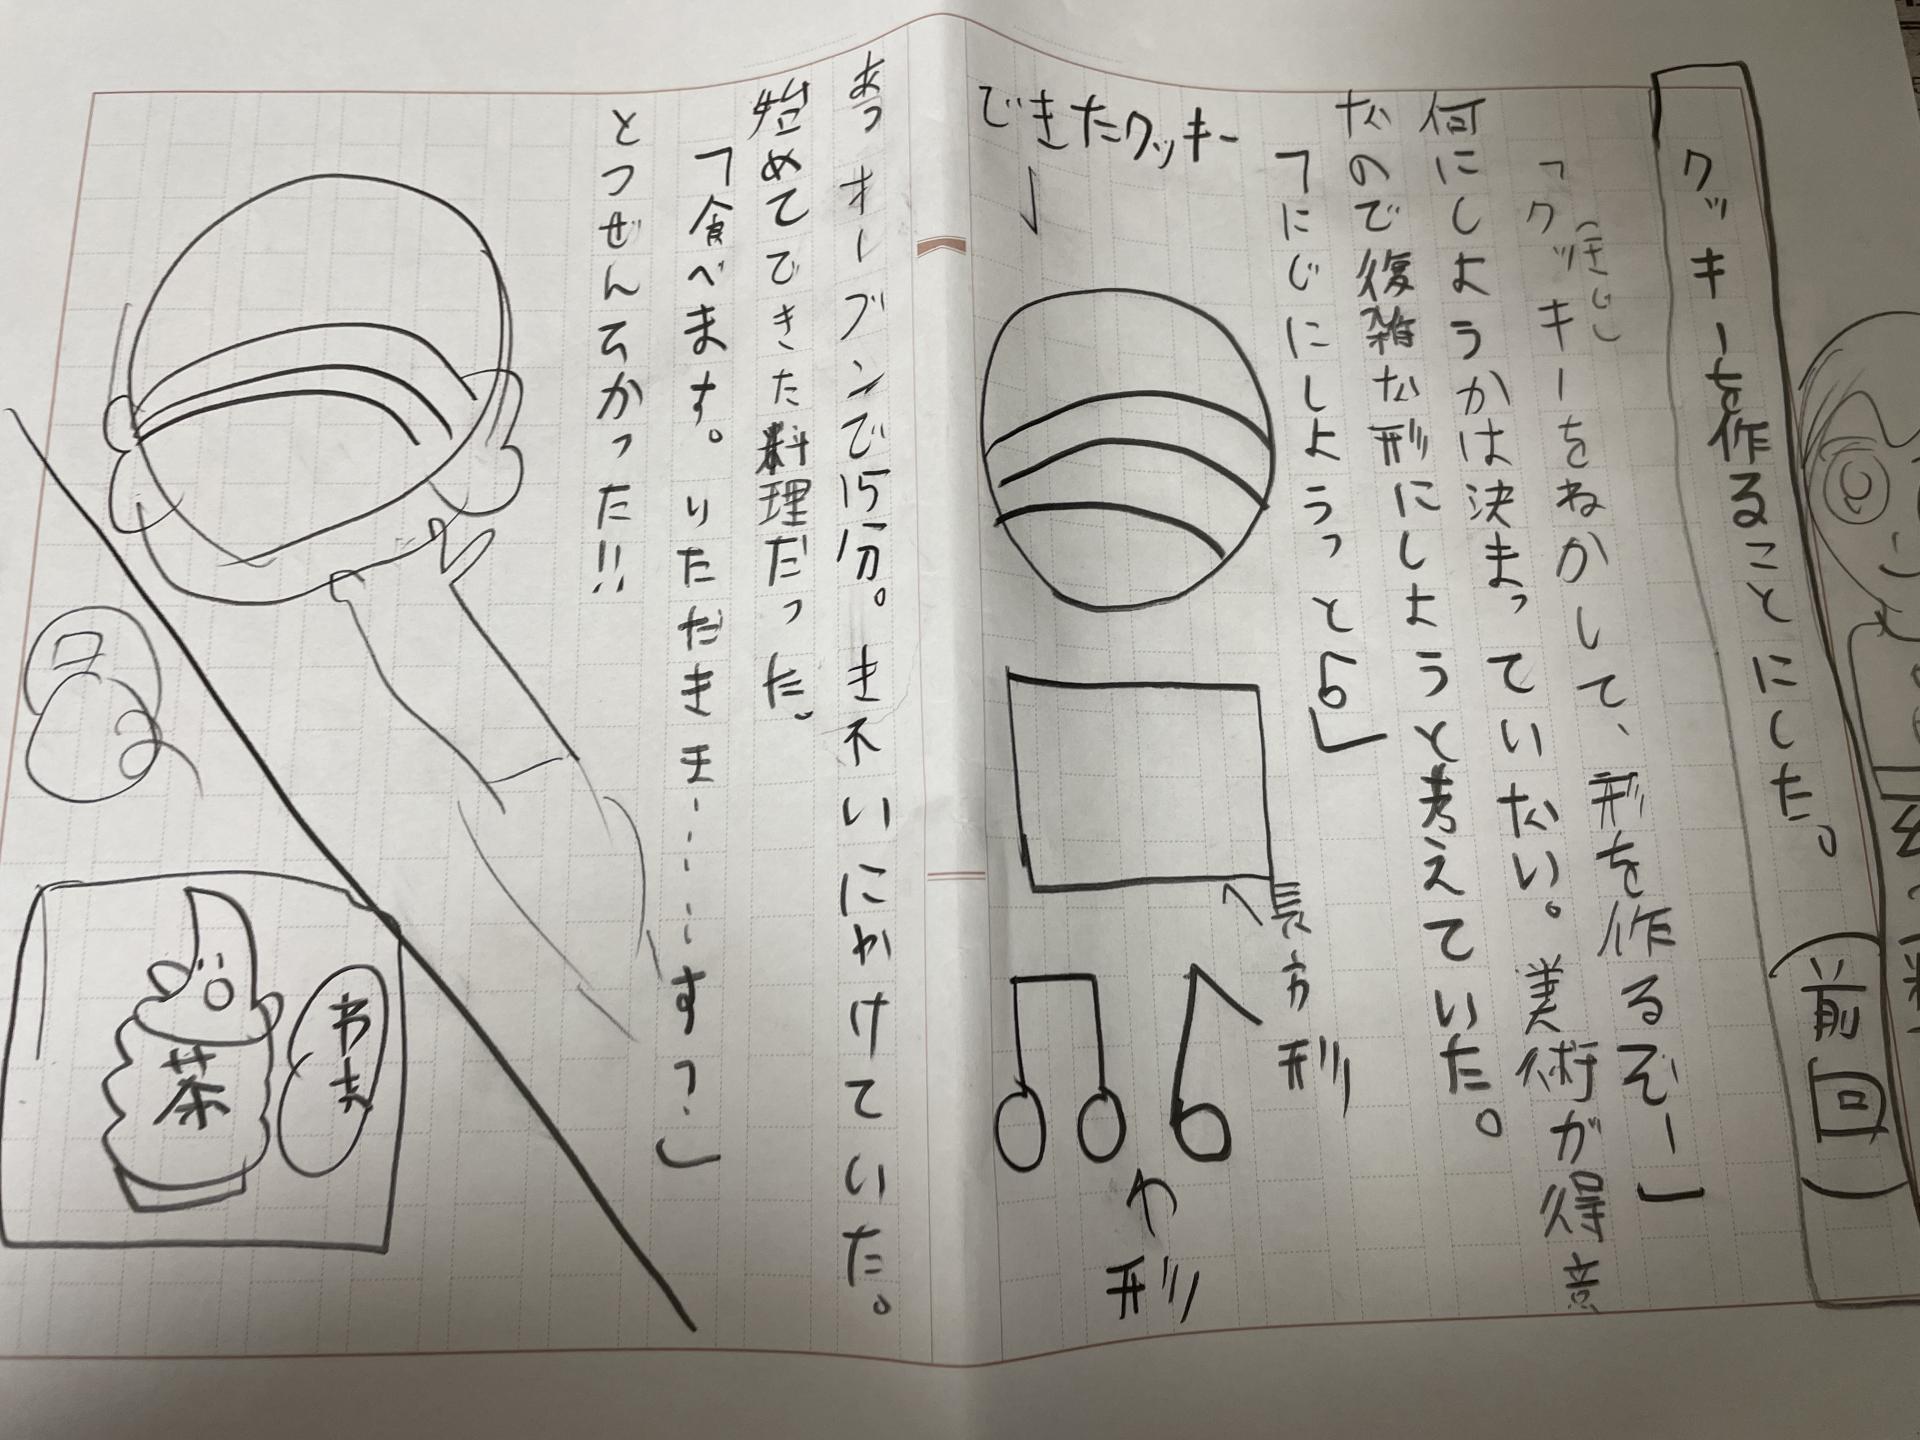 クッキーを作ることにした。(前回)
(きじ)
「クッキーをねかして、形を作るぞー」
何にしようかは決まっていない。美術が得意
なので復雑な形にしようと考えていた。
「にじにしようっと」
できたクッキー
長方形
や
形
あつ オーブンで15分。き不いにやけていた。
始めてできた料理だった。
「食べます。いただきま………す？」
とつぜんでかった!!
茶